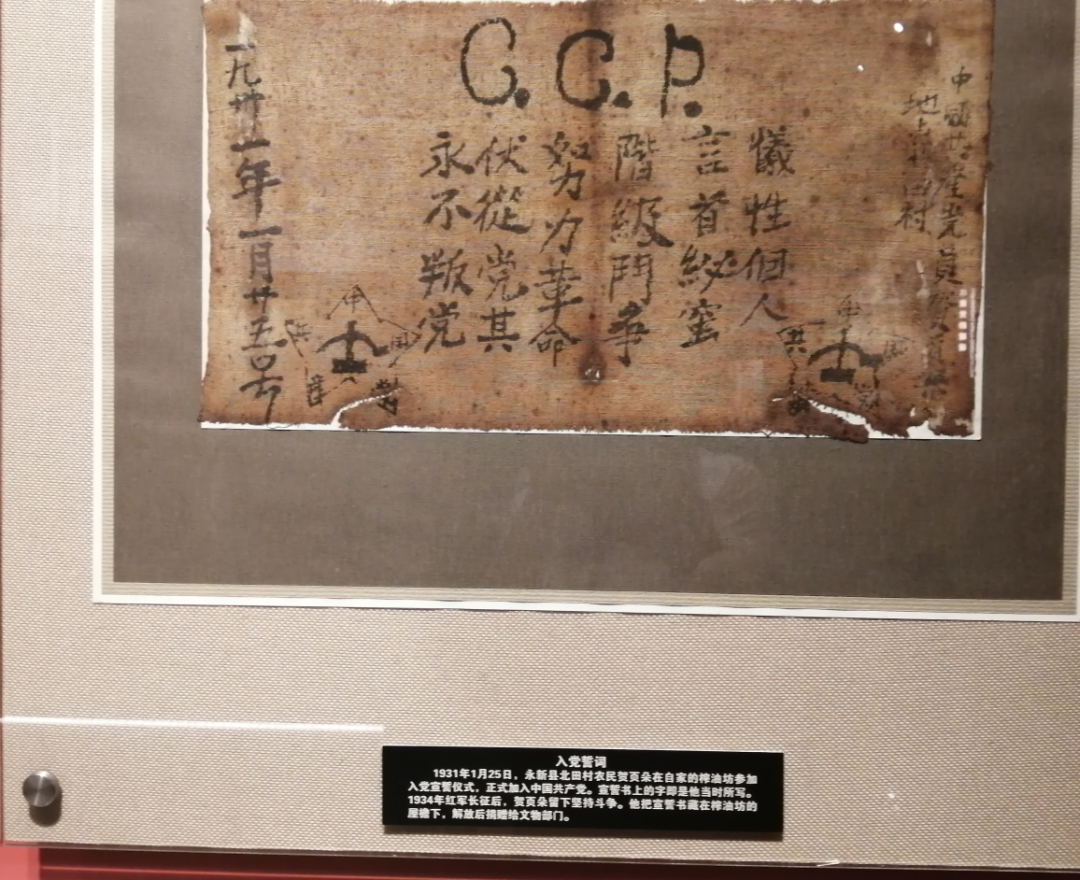 C.C.P.
中國共產党員
地点北田村
犧性個人
言首秘蜜
階級鬥争
努力革命
伏從党其
永不叛党
一九卅一年一月廿五号
中
國
共
中
國
共
入党誓词
1931年1月25日,永新县北田村农民贺页朵在自家的榨油坊参加
入党宣誓仪式,正式加入中国共产党。宣誓书上的字即是他当时所写。
1934年红军长征后,贺页朵留下坚持斗争。他把宣誓书藏在榨油坊的
屋檐下,解放后捐赠给文物部门。